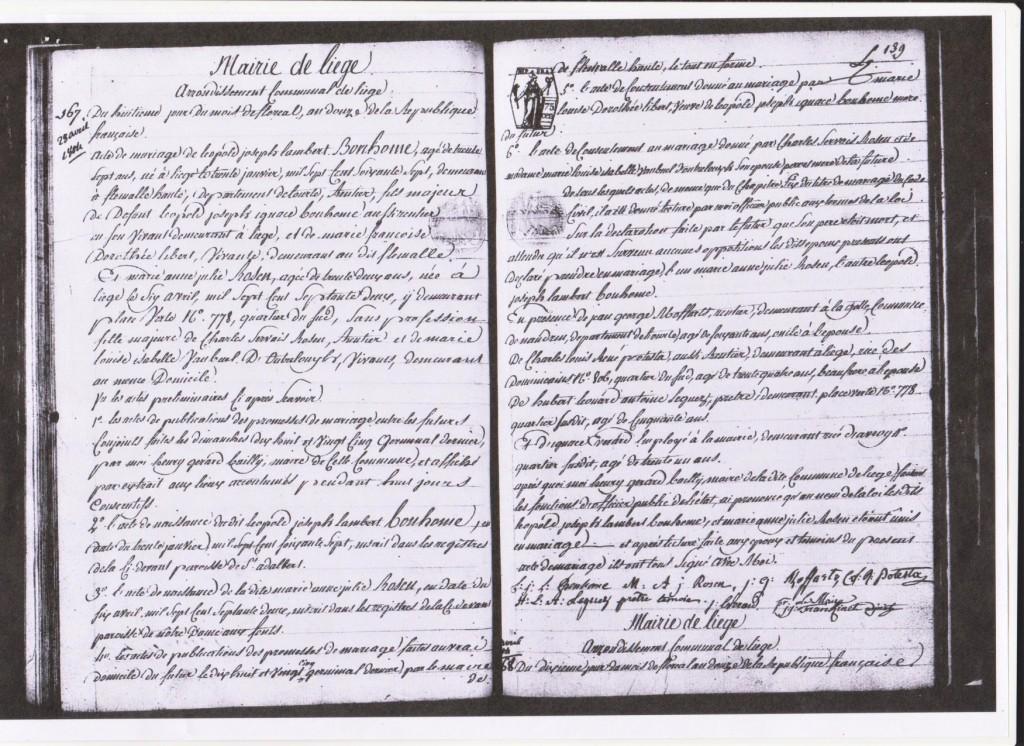 Mairie de liege
Arrondissement Communal de liege.
167 Du huitieme jour du mois de floreal, an douze de la Republique
28 avril
1804
française.
Acte de mariage de leopold joseph lambert Bonhome, agé de trente
sept ans, né à liege le trente janvier, mil sept cent soixante sept, demeurant
à flemalle haute, departement de lourte, Rentier, fils majeur
de Defunt leopold joseph ignace bonhome aussi rentier
en son vivant demeurant à liege, et de marie francoise
Dorothée libert, Vivante, demeurant au dit flemalle.
Et marie anne julie Rosen, agée de trente deux ans, née à
liege le six avril, mil sept Cent Septante deux, y demeurant
place Verte No. 778, quartier du sud, sans profession
fille majeure de Charles Servais Rosen, Rentier et de marie
louise isabelle Vanbeul D' Vivants, demeurant
au meme Domicile.
Vu les actes preliminaires Ci après Scavoir
1o. les actes de publications des promesses de mariage entre les futurs
Conjoints faites les dimanches dix huit et Vingt Cinq Germinal dernier,
par moi henry gerard bailly, maire de Cette Commune, et affichés
par extrait aux lieux accoutumés pendant huit jours
Consecutifs.
2o. l'acte de naissance du dit leopold joseph lambert bonhome, en
date du trente janvier mil sept Cent soixante sept, inscrit dans les registres
de la Ci devant paroisse de St. adalbert.
3o. l'acte de naissance de la dite marie anne julie Rosen, en date du
six avril mil sept Cent septante deux, inscrit dans les registres de la Ci devant
paroisse de nôtre Dame aux fonts.
4o. les actes de publications des promesses de mariage faites au vrai
domicile du futur le dix huit et Vingt cinq germinal dernier par le maire
de
139
de flemalle haute, le tout en forme.
5o. l'acte de Consentement donné au mariage par marie
louise Dorothée libert, Veuve de leopold joseph ignace bonhome mere
du futur
6o. l'acte de Consentement au mariage donné par Charles Servais Rosen et de
madame marie louise isabelle son epouse pere et mere de la future
de tous lesquels actes, de meme que du Chapitre Six du titre de mariage du Code
Civil, il a été donné lecture par moi officier public aux termes de la loi
Sur la declaration faite par le futur que son pere etoit mort, et
attendu qu'il n'est survenu aucunes oppositions les dits epoux presents ont
declaré prendre en mariage, l'un marie anne julie Rosen, l'autre leopold
joseph lambert bonhome.
En presence de jean george Moffarts, rentier, demeurant à Commune
de nandrin, departement de lourte, agé de soixante ans, oncle à l'epouse
De Charles louis potesta, aussi Rentier, demeurant à liege, rue des
dominicains No. quartier du sud, agé de trente quatre ans, beau frere à l'epouse
De hubert leonard antoine lequez, pretre, demeurant place verte No. 778
quartier susdit, agé de Cinquante ans.
Et d'ignace Employé à la mairie, demeurant
quartier susdit, agé de trente un ans.
après quoi moi henry gerard bailly, maire de la dite Commune de liege faisant
les fonctions d'officier public de l'etat, ai prononcé qu'au nom de la loi les dits
leopold joseph lambert bonhome, et marie anne julie Rosen etoient unis
en mariage et après lecture faite aux epoux et temoins du present
acte de mariage ils ont tous signé avec Moi.
L. j. l. Bonhome M: A j Rosen, j: g: Moffarts C. L. R. Potesta
H: L: A: Lequez prêtre temoin
Le Maire
Mairie de liege
Arrondissement Communal de liege.
168 Du dixieme jour du mois de floreal an douze de la republique française